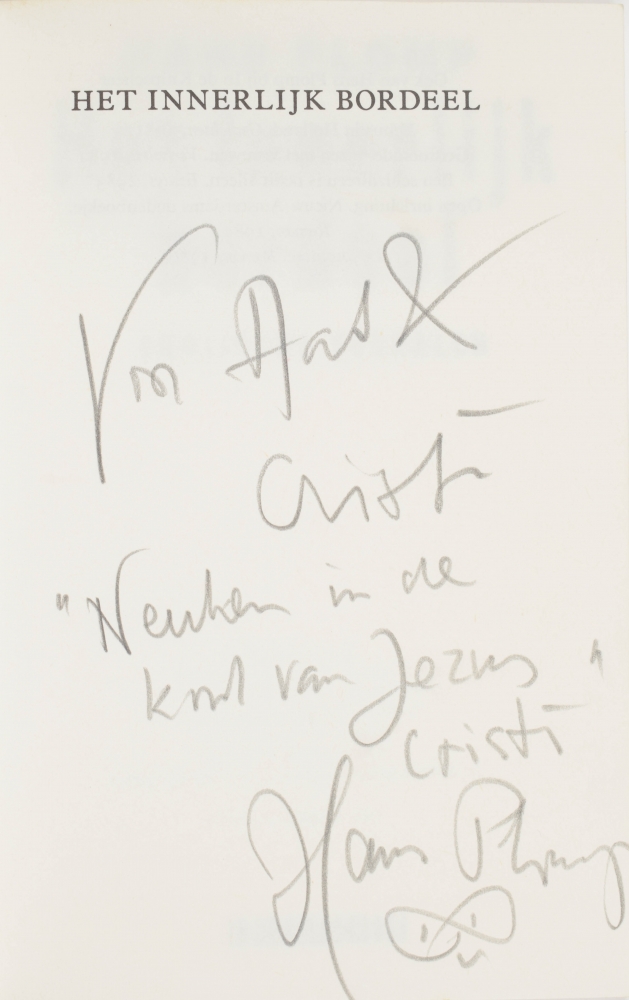 HET INNERLIJK BORDEEL
Voor
Cristi
"Neuken in de
kont van Jezus"
Cristi
Hans Plomp